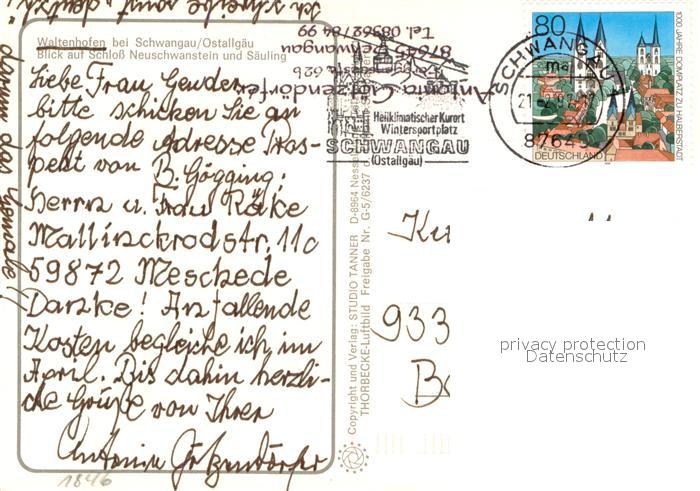 Waltenhofen bei Schwangau/Ostallgäu
Blick auf Schloß Neuschwanstein und Säuling
Liebe Frau Gender
bitte schicken Sie an
folgende Adresse Pros-
pekt von B. Gögging:
Herrn u. Frau Räke
Mallinckrodstr. 11c
59872 Meschede
Danke! Anfallende
Kosten begleiche ich im
April. Bis dahin herzli-
che Grüße von Ihrer
Antonie Götzendörfer
1846
87645 Schwangau
Tel. 08362/84 99
Heilklimatischer Kurort
Wintersportplatz
SCHWANGAU
(Ostallgäu)
SCHWANGAU
87645
80
DEUTSCHLAND
1000 JAHRE DOMPLATZ ZU HALBERSTADT
Copyright und Verlag: STUDIO TANNER D-8964 Nessel
THORBECKE-Luftbild Freigabe Nr. G-5/6237
933
privacy protection
Datenschutz